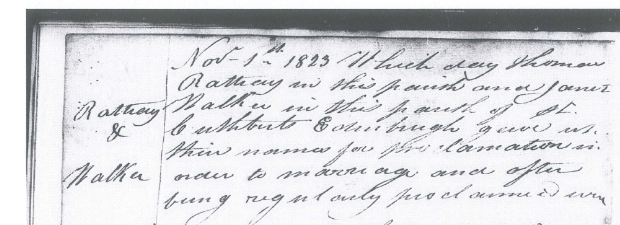 Novr 1st 1823 Which day Thomas
Rattray in this parish and Janet
Rattray & Walker
Walker in this parish of St.
Cuthberts Edinburgh gave up
their names for proclamation in
order to marriage and after
being regularly proclaimed were